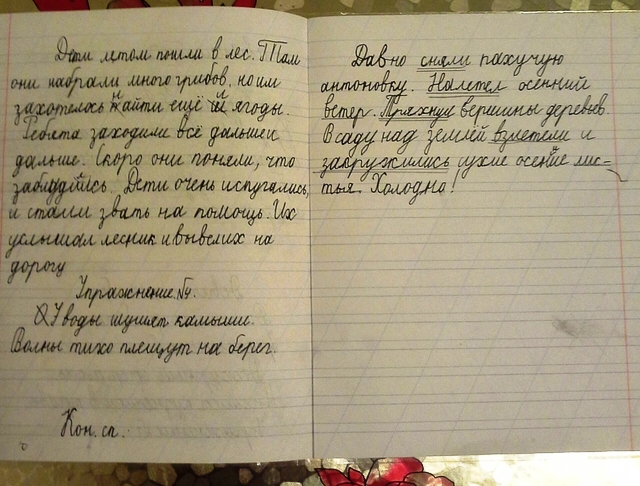 Дети летом пошли в лес. Там
они набрали много грибов, но им
захотелось найти ещё и ягоды.
Ребята заходили всё дальше и
дальше. Скоро они поняли, что
заблудились. Дети очень испугались,
и стали звать на помощь. Их
услышал лесник и вывел их на
дорогу
Упражнение №4.
У воды шумят камыши.
Волны тихо плещут на берег.
Кон. сп.
Давно сняли пахучую
антоновку. Налетел осенний
ветер. Пряхнул вершины деревьев.
В саду над землёй взлетели и
закружились сухие осение лис-
тья. Холодно!